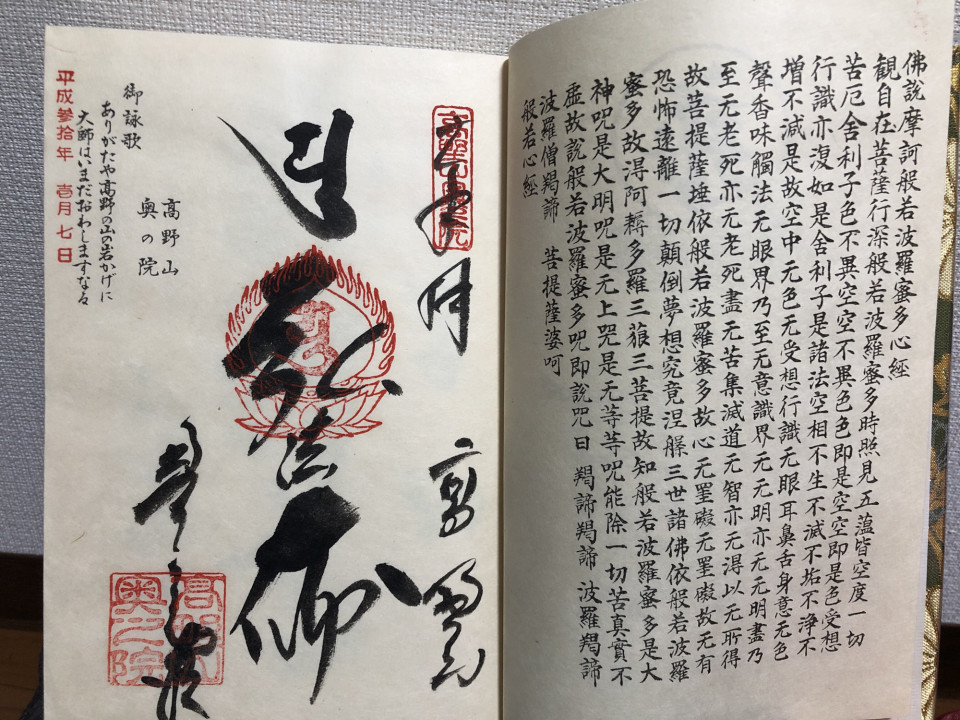 佛說摩訶般若波羅蜜多心經
観自在菩薩行深般若波羅蜜多時照見五薀皆空度一切
苦厄舍利子色不異空空不異色色即是空空即是色受想
行識亦復如是舍利子是諸法空相不生不滅不垢不浄不
增不減是故空中无色无受想行識无眼耳鼻舌身意无色
聲香味觸法无眼界乃至无意識界无无明亦无无明盡乃
至无老死亦无老死盡无苦集滅道无智亦无得以无所得
故菩提薩埵依般若波羅蜜多故心无罣礙无罣礙故无有
恐怖遠離一切顛倒夢想究竟涅槃三世諸佛依般若波羅
蜜多故得阿耨多羅三藐三菩提故知般若波羅蜜多是大
神咒是大明咒是无上咒是无等等咒能除一切苦真實不
虛故說般若波羅蜜多咒即說咒曰 羯諦羯諦 波羅羯諦
波羅僧羯諦 菩提薩婆呵
般若心經
奉拜 高野山
弘法大師
奥之院
高野山
奥の院
御詠歌
ありがたや高野の山の岩かげに
大師はいまだおわしますなる
平成参拾年 壱月七日
高野山
奥之院